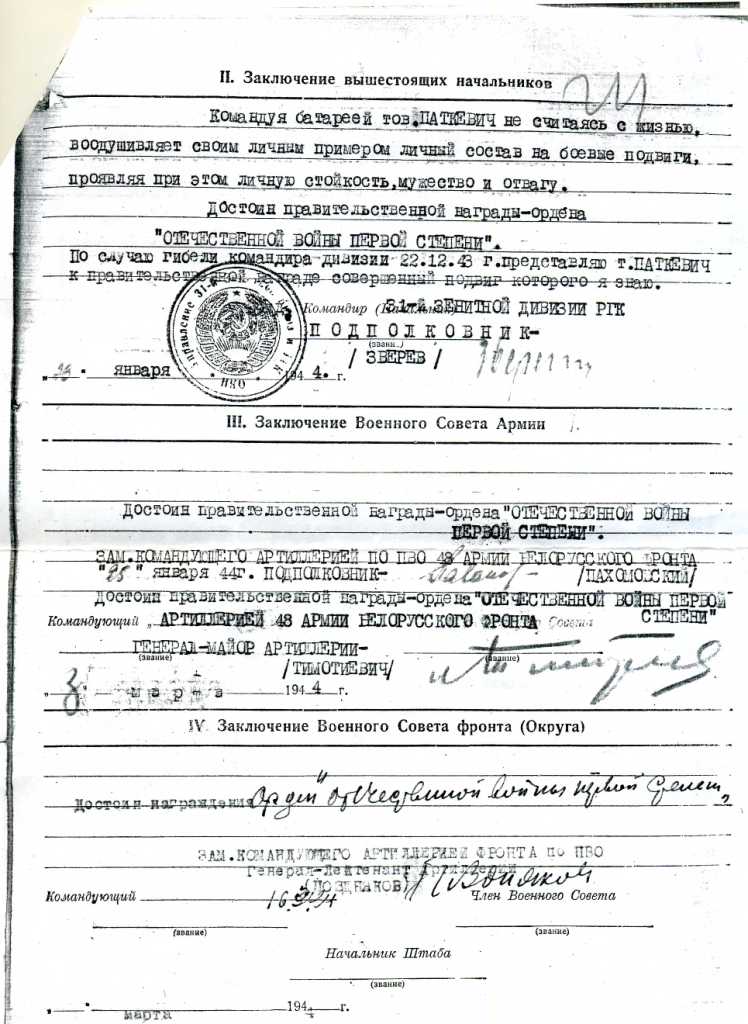 II. Заключение вышестоящих начальников
Командуя батареей тов.ПАТКЕВИЧ не считаясь с жизнью,
воодушивляет своим личным примером личный состав на боевые подвиги,
проявляя при этом личную стойкость,мужество и отвагу.
Достоин правительственной награды-ордена
"ОТЕЧЕСТВЕННОЙ ВОЙНЫ ПЕРВОЙ СТЕПЕНИ".
По случаю гибели командира дивизии 22.12.43 г.представляю т.ПАТКЕВИЧ
к правительственной награде совершенный подвиг которого я знаю.
Командир (Начальник) 31-й ЗЕНИТНОЙ ДИВИЗИИ РГК
ПОДПОЛКОВНИК-
(зван..)
/ ЗВЕРЕВ /
января 1944. г.
Управление 31-й НКО
III. Заключение Военного Совета Армии
Достоин правительственной награды-ордена"ОТЕЧЕСТВЕННОЙ ВОЙНЫ
ПЕРВОЙ СТЕПЕНИ".
ЗАМ.КОМАНДУЮЩЕГО АРТИЛЛЕРИЕЙ ПО ПВО 48 АРМИИ БЕЛОРУССКОГО ФРОНТА
"25" января 44г. ПОДПОЛКОВНИК- /ПАХОМОВСКИЙ/
Достоин правительственной награды-ордена"ОТЕЧЕСТВЕННОЙ ВОЙНЫ ПЕРВОЙ
СТЕПЕНИ"
Командующий АРТИЛЛЕРИЕЙ 48 АРМИИ БЕЛОРУССКОГО ФРОНТА Совета
ГЕНЕРАЛ-МАЙОР АРТИЛЛЕРИИ-
(звание) (звание)
/ТИМОТИЕВИЧ/
„3." марта 1944 г.
IV. Заключение Военного Совета фронта (Округа)
Достоин награждения Орден "отечественной войны первой степени"
ЗАМ.КОМАНДУЮЩЕГО АРТИЛЛЕРИЕЙ ФРОНТА по ПВО
Генерал-Лейтенант Артиллерии
(ПОЗДНЯКОВ)
Командующий 16.3.44 Член Военного Совета
(звание) (звание)
Начальник Штаба
(звание)
„ " марта 1944 г.